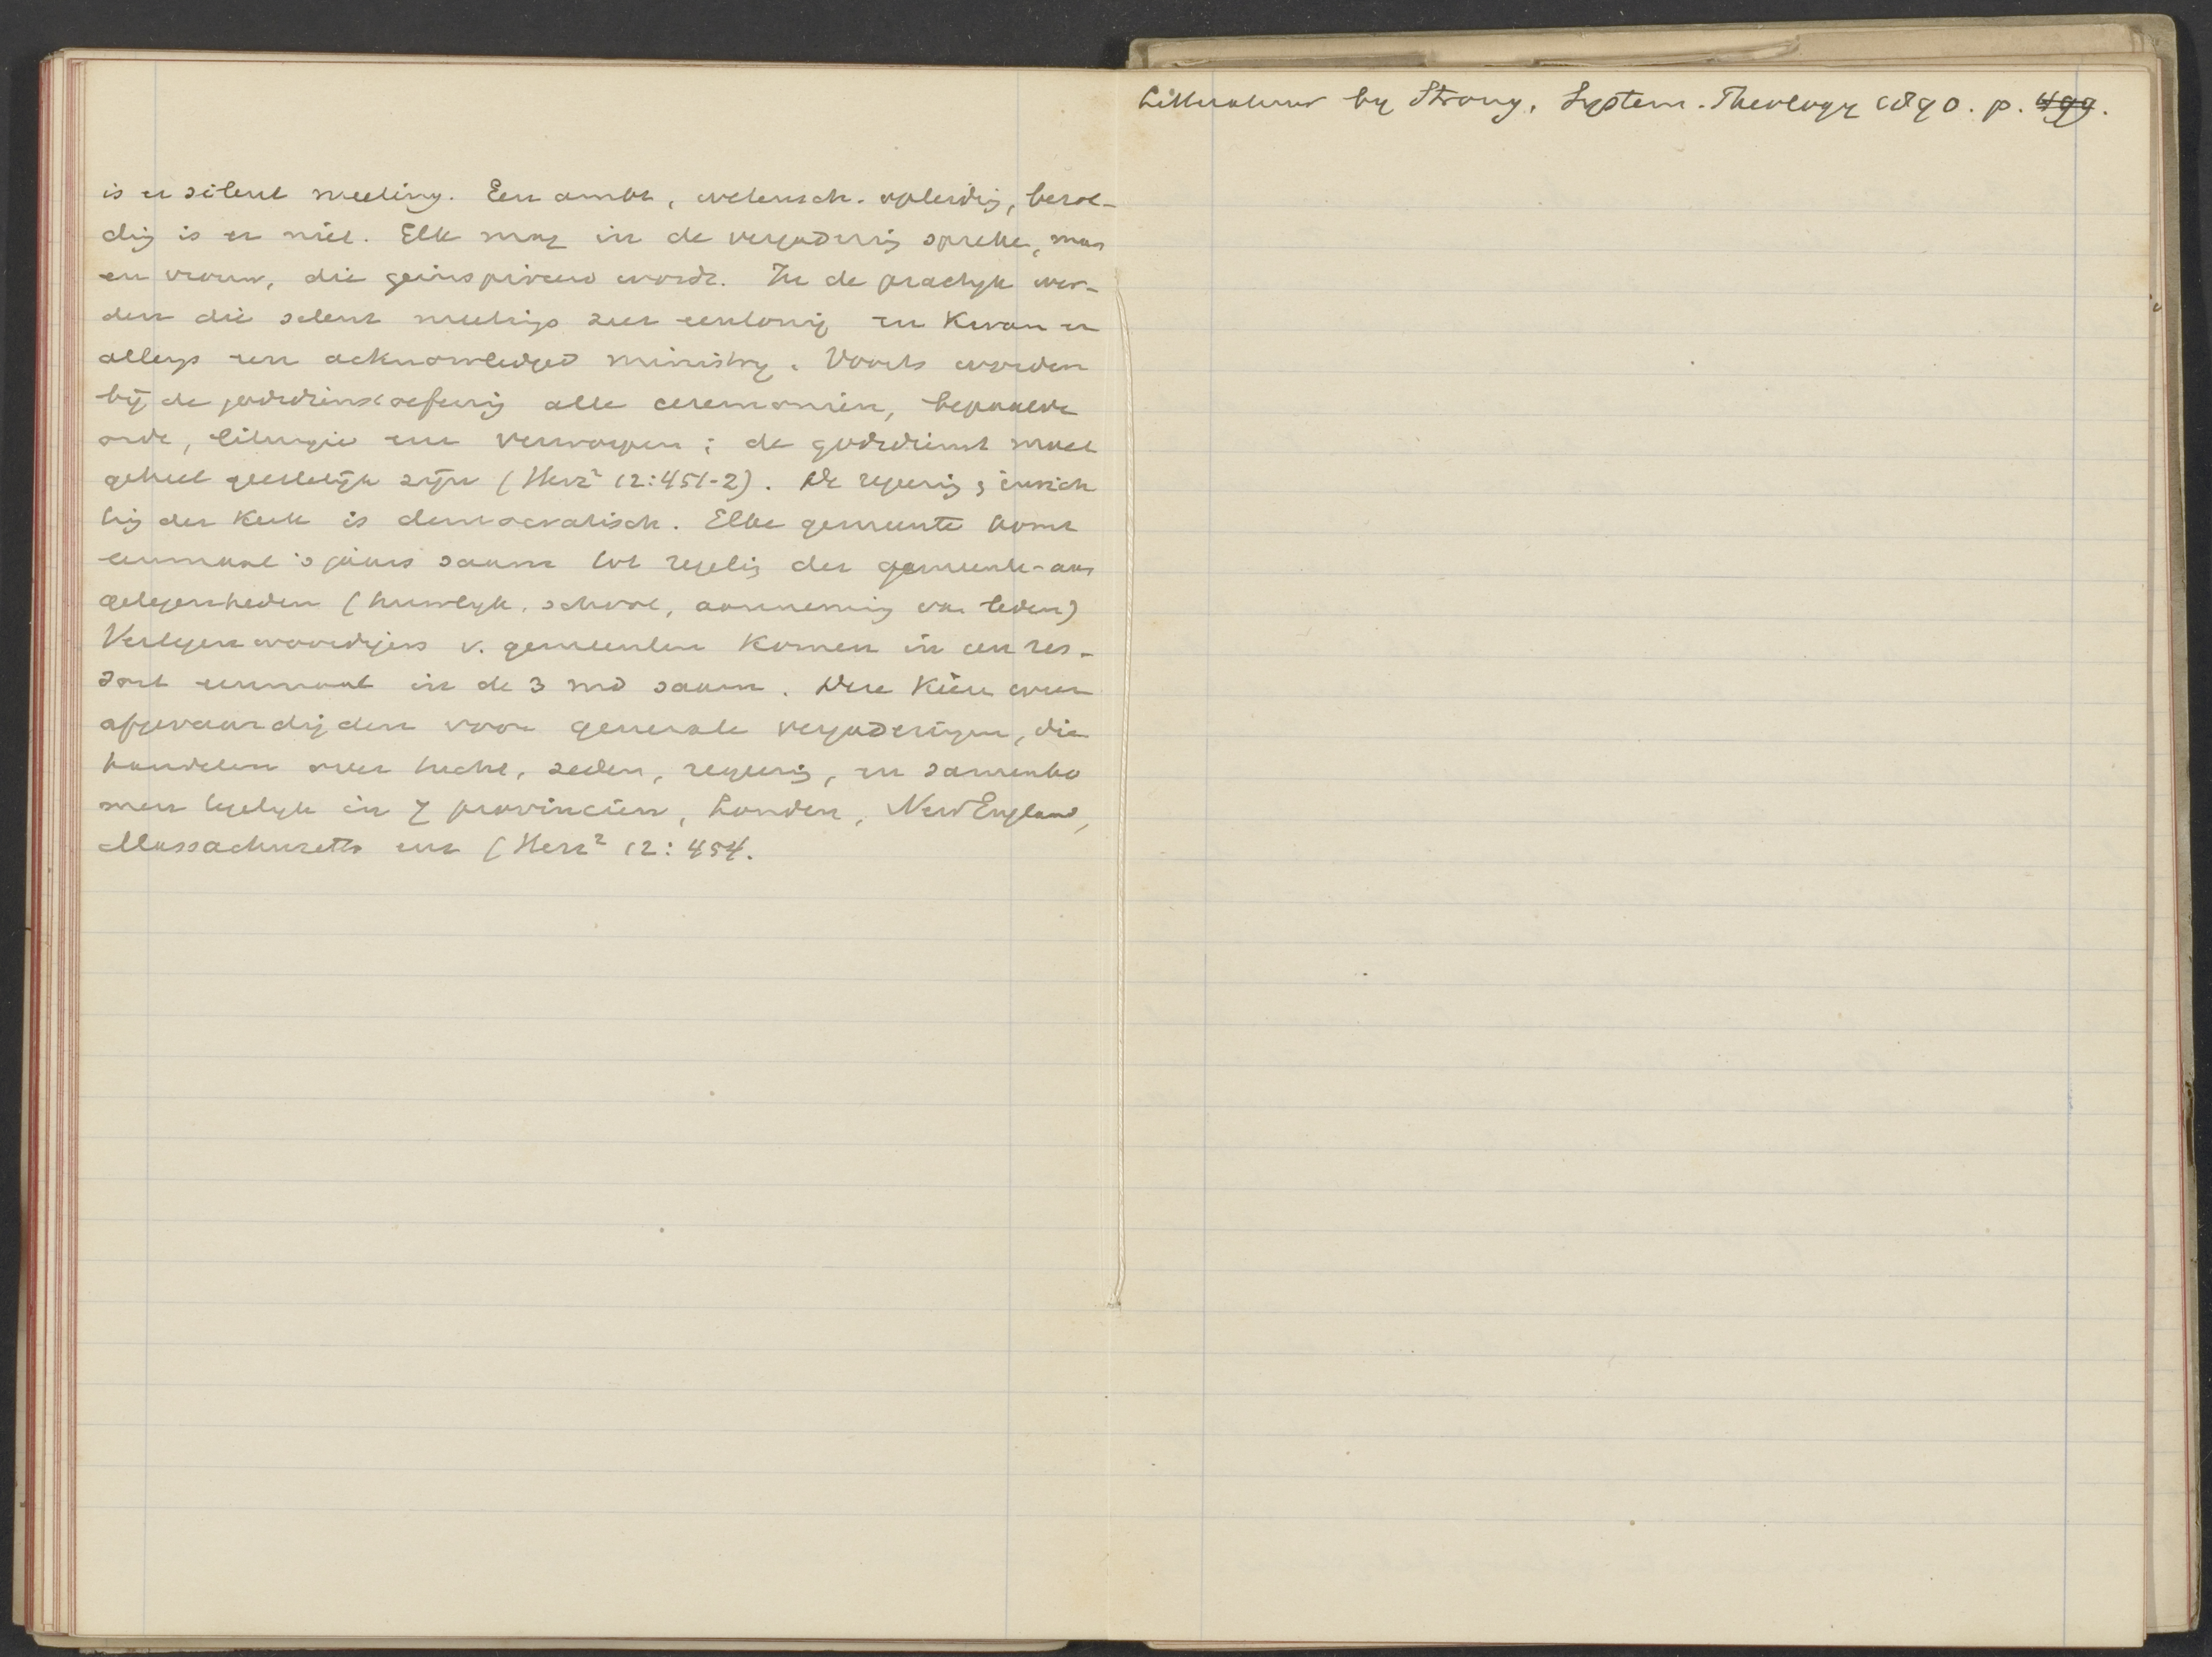 is er silent meeting. Een ambt, wetensch. opleidig, besol-
dig is er niet. Elk mag in de vergaderig spreke, man
en vrouw, die geinspireerd wordt. In de practyk wer-
den die silent meetings zeer eentonig en kwam er
allengs een acknowledged ministry. Voorts worden
bij de godsdienstoefenig alle ceremonien, bepaalde
orde, liturgie enz verworpen; de godsdienst moet
geheel geestelijk zijn (Herz² 12:451-2). De regeerig & inrich
tig der Kerk is democratisch. Elke gemeente komt
eenmaal 's jaars saam tot regelig der gemeente-aan
gelegenheden (huwelyk, school, aannemig van leden)
Vertegenwoordigers v. gemeenten komen in een res-
sort eenmaal in de 3 md saam. Deze kiezen weer
afgevaardigden voor generale vergaderingen, die
handelen over tucht, zeden, regeerig, en samenko
men in 7 provincien, Londen, New England,
Massachusetts enz (Herz² 12:454.
Litteratuur by Strong, System. Theology 1890. p. 499.